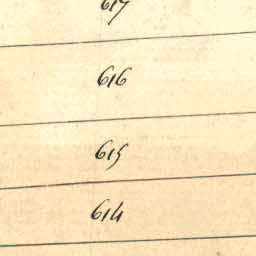 617
616
615
614